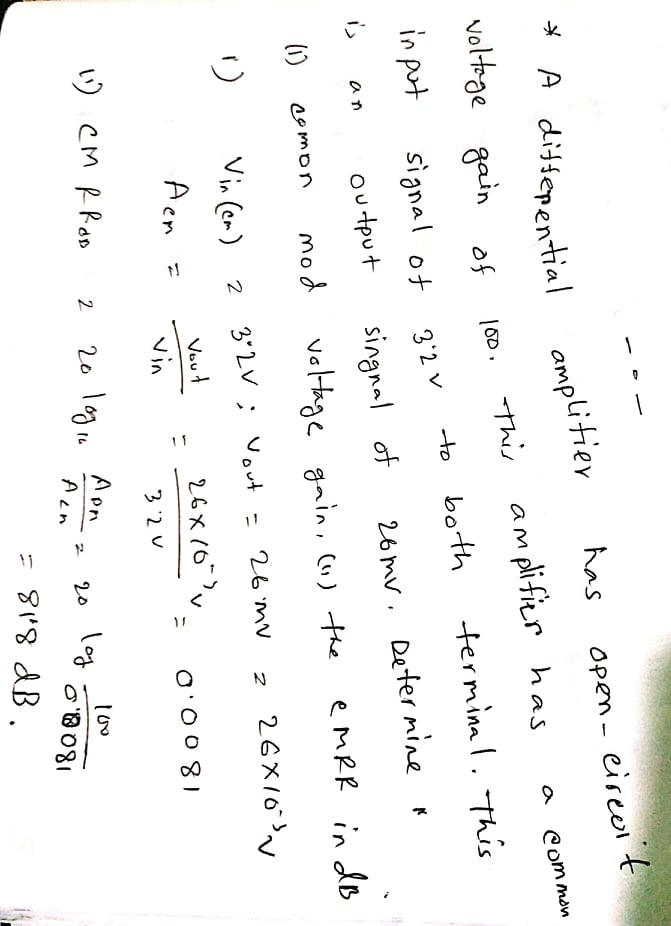 * A differential amplifier has open-circuit
voltage gain of 100. This amplifier has a common
input signal of 3.2 V to both terminal. This
is an output singnal of 26mv. Determine
(i) common mod voltage gain, (ii) the CMRR in dB.
i) Vin(cm) = 3.2V; Vout = 26 mV = 26×10⁻³V
Acm = Vout/Vin = 26×10⁻³V/3.2V = 0.0081
ii) CMRRdB = 20 log₁₀ ADM/Acm = 20 log 100/0.0081
= 81.8 dB.